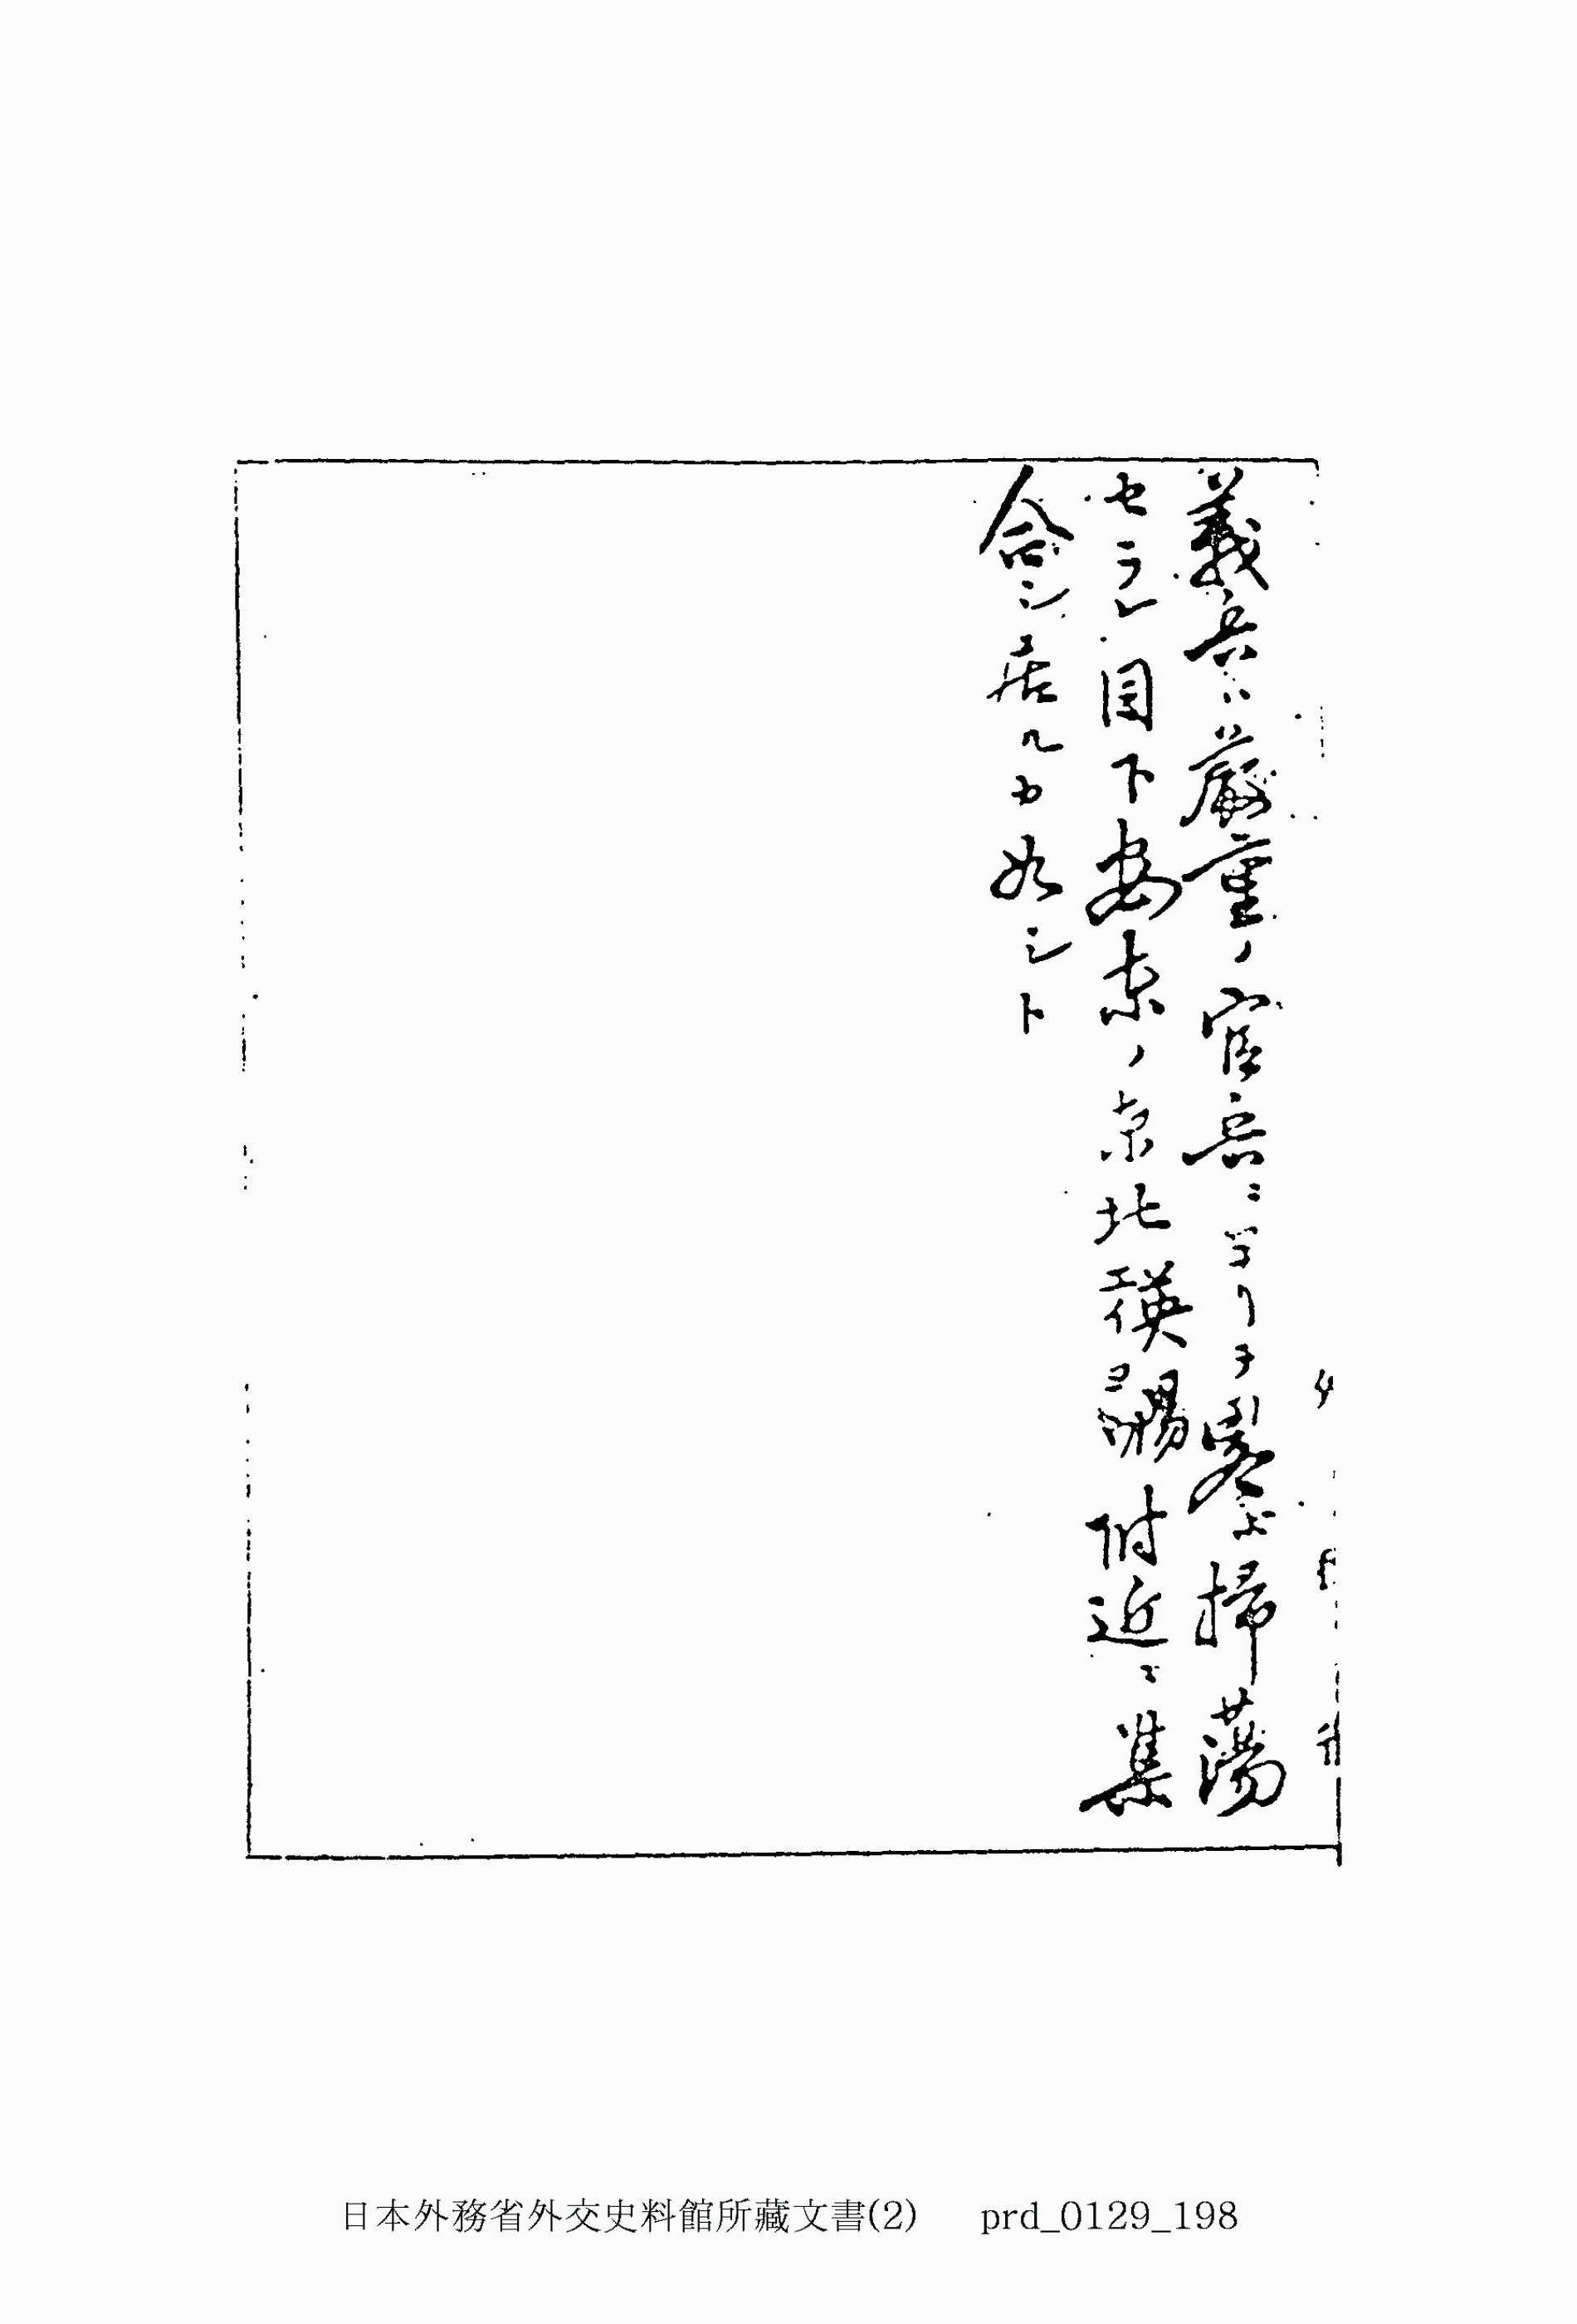 義兵ハ嚴重ノ官兵ニヨリテ畧ホ掃蕩
セラレ目下安東ノ東北英陽附近ニ集
合シ居ルカ如シト
日本外務省外交史料館所藏文書(2) prd_0129_198